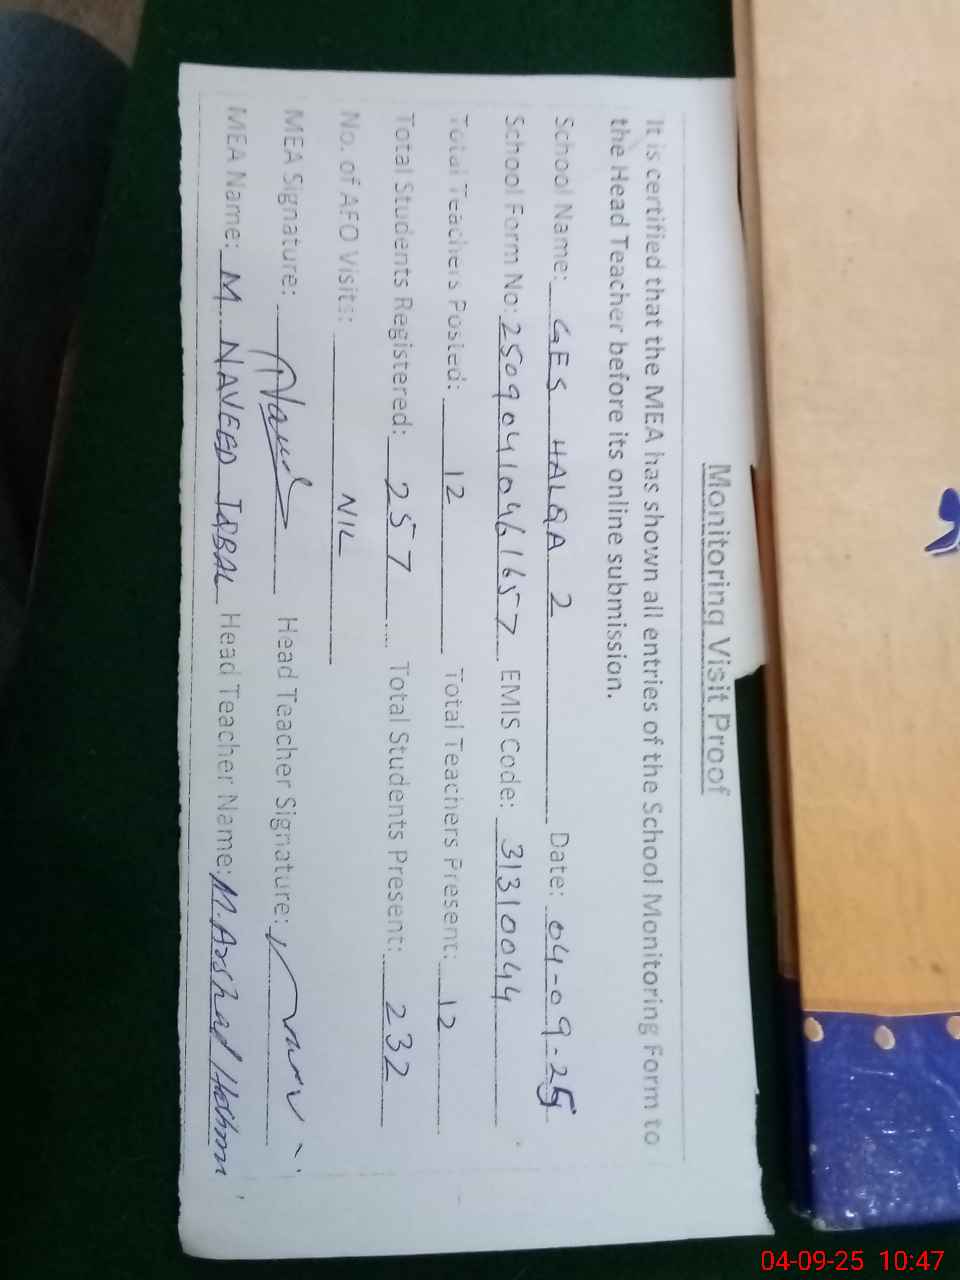 Monitoring Visit Proof
It is certified that the MEA has shown all entries of the School Monitoring Form to
the Head Teacher before its online submission.
School Name: GES HALQA 2 Date: 04-09-25
School Form No: 25090410461657 EMIS Code: 31310044
Total Teachers Posted: 12 Total Teachers Present: 12
Total Students Registered: 257 Total Students Present: 232
No. of AEO Visits: NIL
MEA Signature: Head Teacher Signature:
MEA Name: M NAVEED IQBAL Head Teacher Name: M. Arshad
04-09-25 10:47